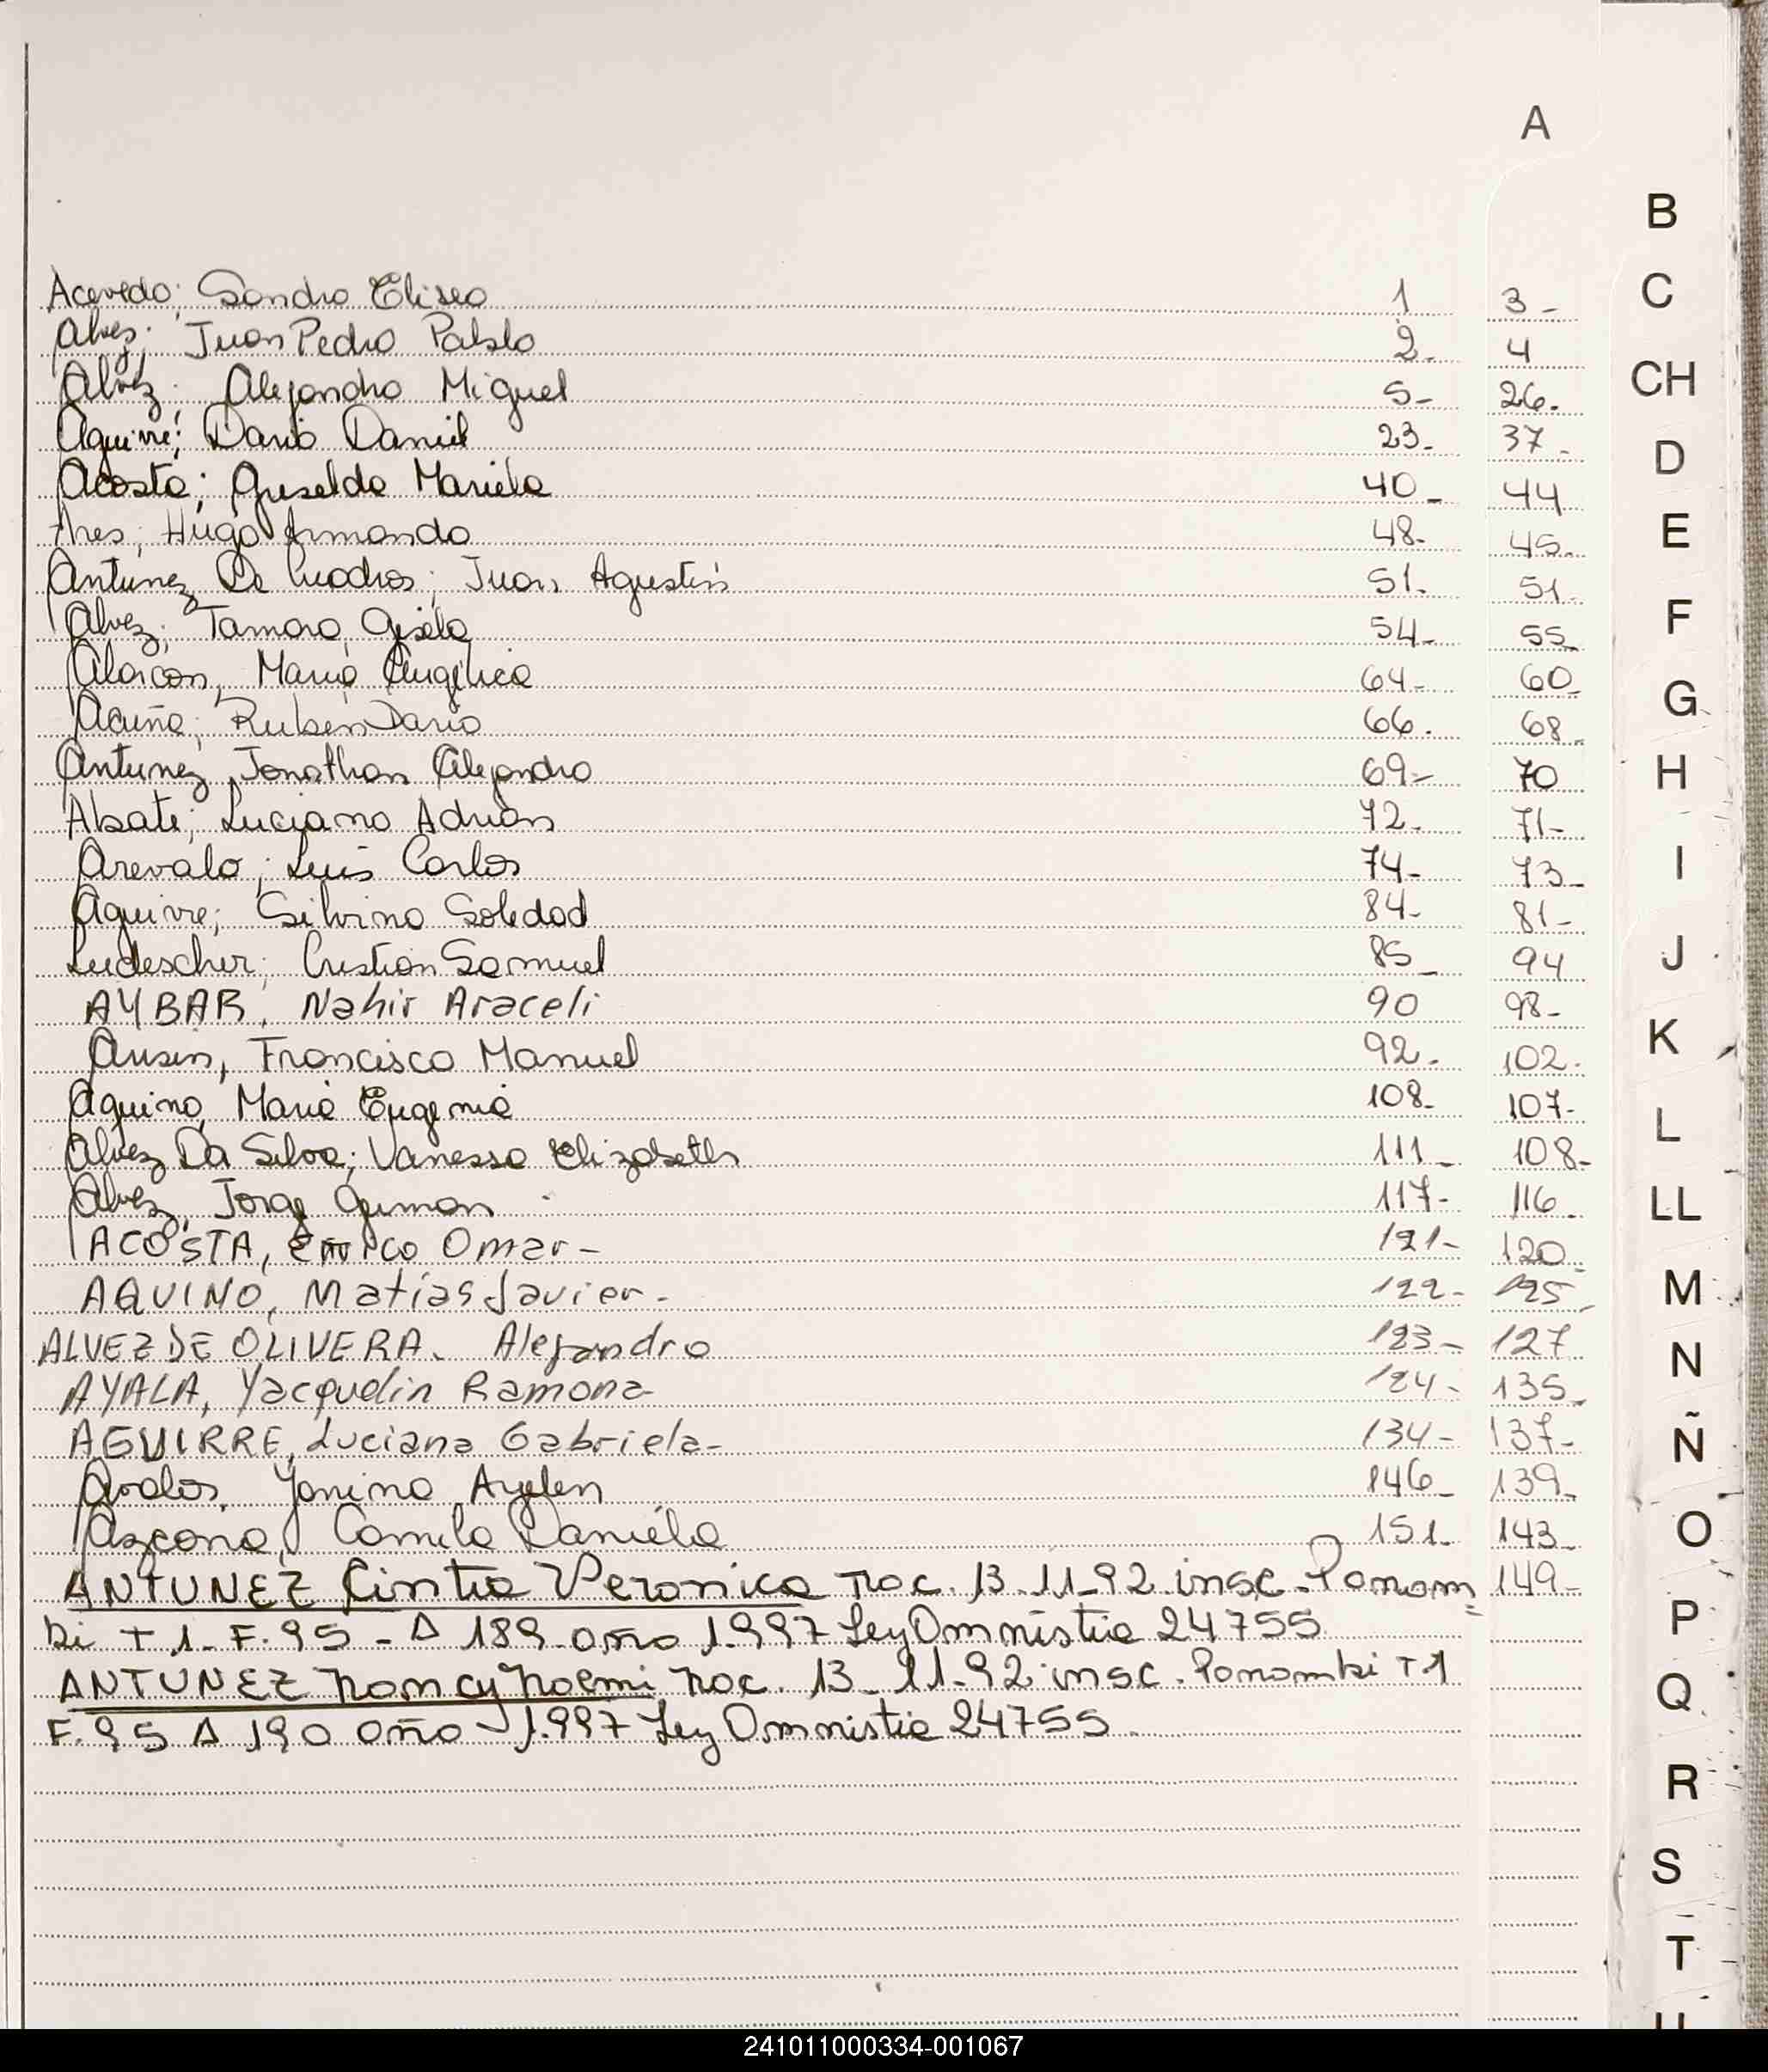 A
Acevedo; Sandro Eliseo 1 3-
Alvez; Juan Pedro Pablo 2- 4
Alvez; Alejandro Miguel 5- 26-
Aguirre; Dario Daniel 23- 37-
Acosta; Griselda Mariela 40- 44
Ares; Hugo Armando 48- 45-
Antunez De Cuadros; Juan Agustin 51- 51-
Alvez; Tamara Gisela 54- 55-
Alarcon, Maria Angelica 64- 60-
Acuña; Ruben Dario 66. 68-
Antunez, Jonathan Alejandro 69- 70
Abate; Luciano Adrian 72- 71-
Arevalo; Luis Carlos 74- 73-
Aguirre; Silvina Soledad 84- 81-
Ludescher; Cristian Samuel 85- 94
AYBAR, Nahir Araceli 90 98-
Ausin, Francisco Manuel 92- 102-
Aquino, Maria Eugenia 108- 107-
Alvez Da Silva; Vanessa Elizabeth 111- 108-
Alvez, Jorge German 117- 116-
ACOSTA, Enrico Omar- 121- 120-
AQUINO, Matías Javier- 122- 125-
ALVEZ DE OLIVERA. Alejandro 123- 127
AYALA, Yacquelin Ramona 124- 135-
AGUIRRE, Luciana Gabriela- 134- 137-
Avalos, Yanina Ayelen 146- 139-
Azcona, Camila Daniela 151- 143-
ANTUNEZ Cintia Veronica nac. 13-11-92 insc. Panam= 149-
bi T 1- F. 95 - A 189 año 1.997 Ley Omnistia 24755
ANTUNEZ Nancy Noemi nac. 13-11-92 insc. Panambi T 1
F. 95 A 190 año 1.997 Ley Omnistia 24755.
B
C
CH
D
E
F
G
H
I
J
K
L
LL
M
N
Ñ
O
P
Q
R
S
T
241011000334-001067